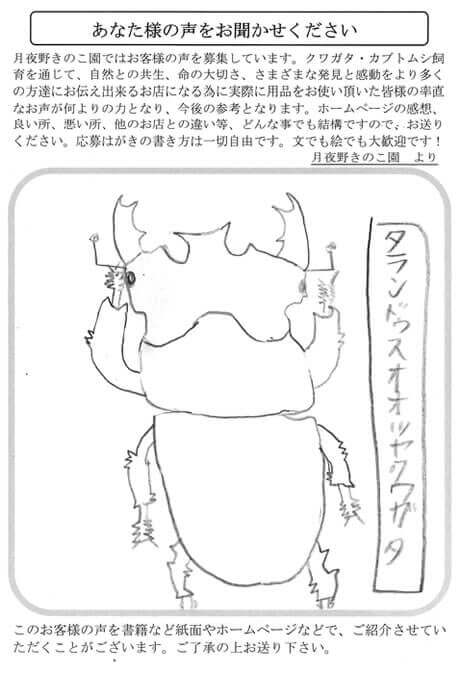 あなた様の声をお聞かせください
月夜野きのこ園ではお客様の声を募集しています。クワガタ・カブトムシ飼
育を通じて、自然との共生、命の大切さ、さまざまな発見と感動をより多く
の方達にお伝え出来るお店になる為に実際に用品をお使い頂いた皆様の率直
なお声が何よりの力となり、今後の参考となります。ホームページの感想、
良い所、悪い所、他のお店との違い等、どんな事でも結構ですので、お送り
ください。応募はがきの書き方は一切自由です。文でも絵でも大歓迎です！
月夜野きのこ園　より
タランドゥスオオツヤクワガタ
このお客様の声を書籍など紙面やホームページなどで、ご紹介させてい
ただくことがございます。ご了承の上お送り下さい。